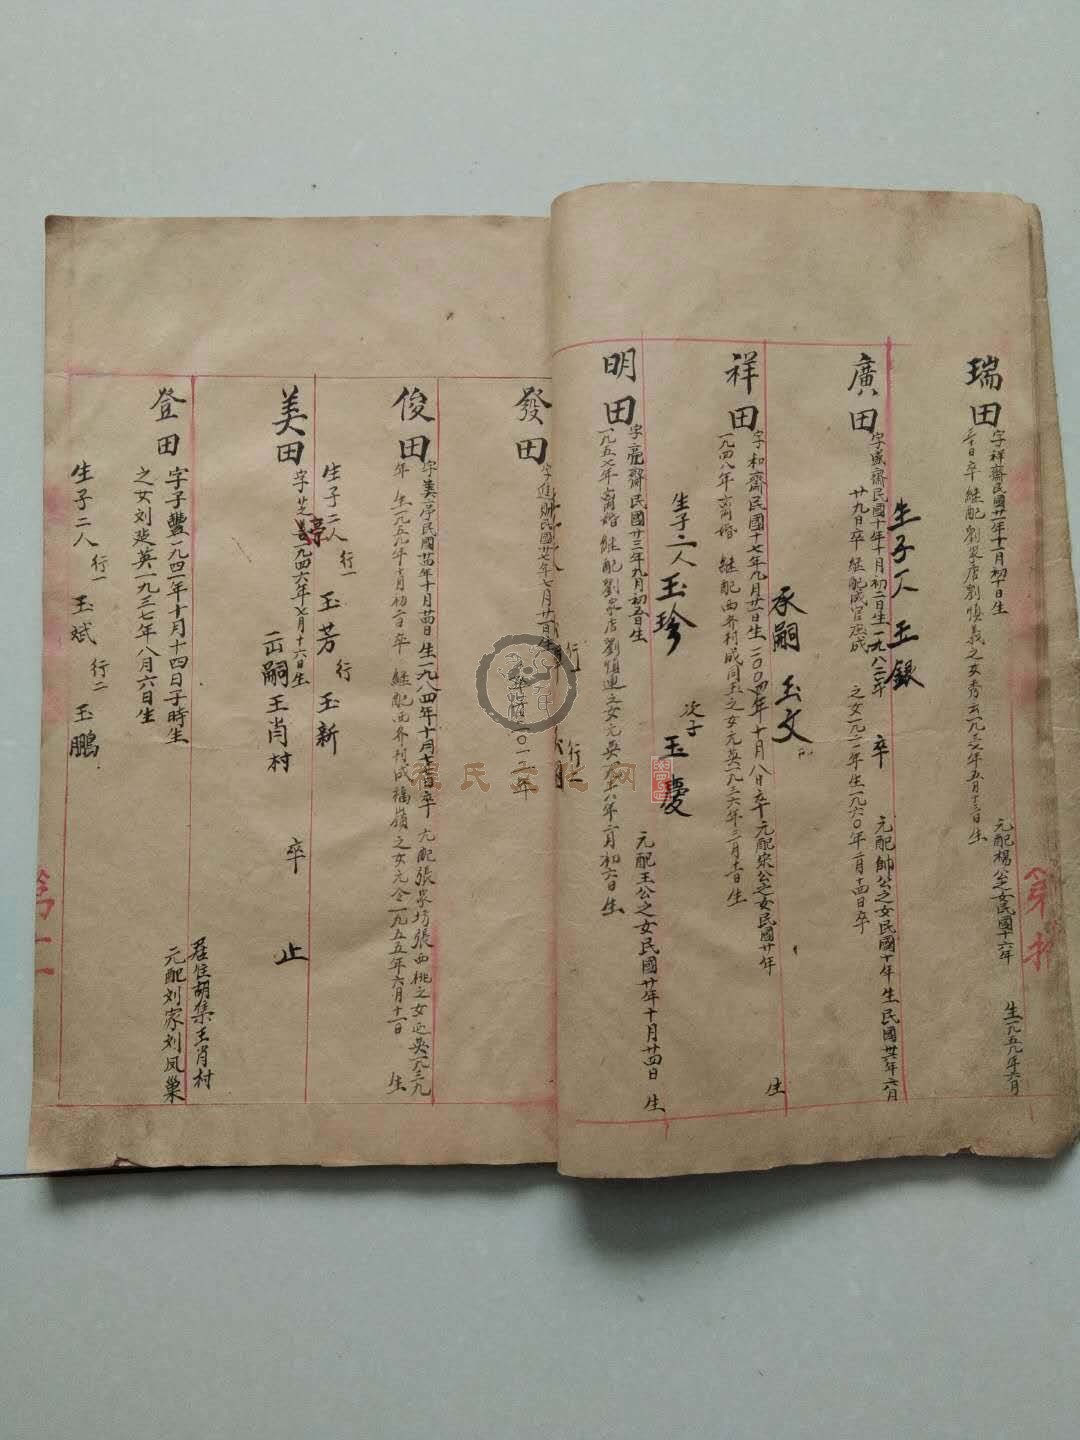 瑞田
字祥齋民國廿一年十一月初十日生
元配楊公之女民國十六年
生一九五九年六月
三十日卒 継配劉泉店劉慎義之女秀云一九三六年五月十三日生
生子一人 玉銀
廣田
字盛齋民國十年十月初二日生一九八二年
卒
元配帥公之女民國十年生民國廿六年六月
廿九日卒 継配成官庄成
之女一九二一年生一九六〇年二月十四日卒
承嗣 玉文
祥田
字和齋民國十七年九月廿一日生二〇〇四年十月八日卒元配宋公之女民國廿年
生
一九四八年离婚 継配西齐村成同玉之女元英一九三六年三月十二日生
生子二人玉珍
次子 玉慶
明田
字亮齋民國廿三年九月初五日生
元配王公之女民國廿年十月廿四日生
一九五七年离婚 継配劉泉店劉慎連之女元英
年二月初六日生
發田
字進
民國廿七年七月廿一日生
卒
二〇一二年
俊田
字美亭民國廿四年十月廿四日生一九八四年十月七日卒
元配張泉坊張西桃之女
英一九三九
年
生一九五九年十月初二日卒 継配西齐村成福嶺之女元令一九五五年六月十二日
生
生子二人
行一 玉芳
行二 玉新
美田
字芝亭一九四六年七月十六日生
出嗣王肖村
卒
止
登田
居住胡集王肖村
元配刘家刘凤巢
字子豐一九四一年十月十四日子時生
之女刘爱英一九三七年八月六日生
生子二人
行一 玉斌
行二 玉鵬
程氏文化网